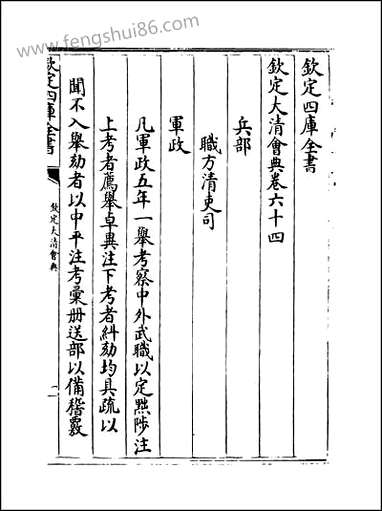 www.fengshui86.com
欽定四庫全書
欽定大清會典卷六十四
兵部
職方清吏司
軍政
凡軍政五年一舉考察中外武職以定黜陟注
上考者薦舉卓異注下考者糾劾均具疏以
聞不入舉劾者以中平注考彙册送部以備稽覈
欽定四庫全書
欽定大清會典